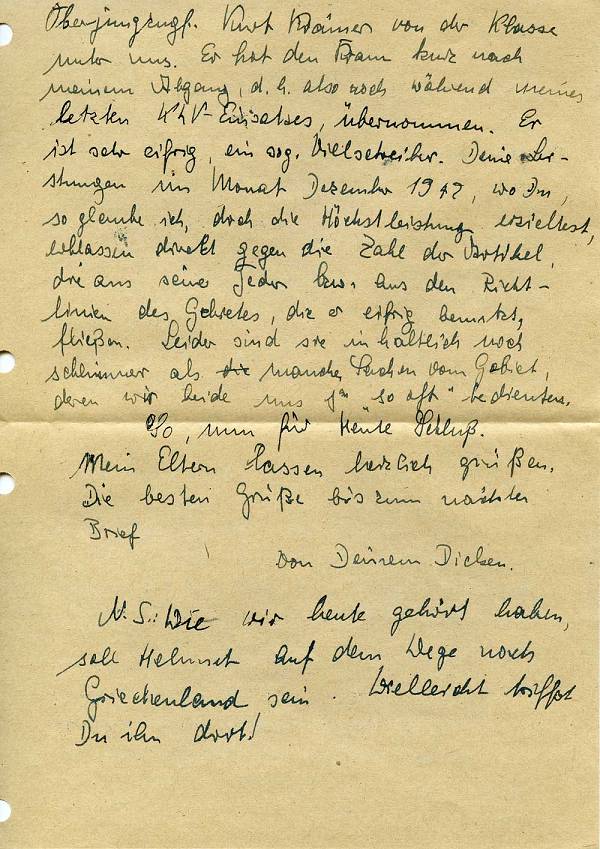 Oberjungzugf. Kurt Krämer von der Klasse
unter uns. Er hat den Kram kurz nach
meinem Abgang, d.h. also noch während meines
letzten KLV-Einsatzes, übernommen. Er
ist sehr eifrig, ein sog. Vielschreiber. Deine Lei-
stungen im Monat Dezember 1942, wo Du,
so glaube ich, doch die Höchstleistung erzieltest,
erblassen direkt gegen die Zahl der Artikel,
die aus seiner Feder bzw. aus den Richt-
linien des Gebietes, die er eifrig benutzt,
fließen. Leider sind sie inhaltlich noch
schlimmer als die manche Sachen vom Gebiet,
deren wir beide uns ja "so oft" bedienten.
So, nun für heute Schluß.
Mein Eltern lassen herzlich grüßen.
Die besten Grüße bis zum nächsten
Brief
von Deinem Dicken.
N.S.: Wie wir heute gehört haben,
soll Helmut auf dem Wege nach
Griechenland sein. Vielleicht triffst
Du ihn dort!